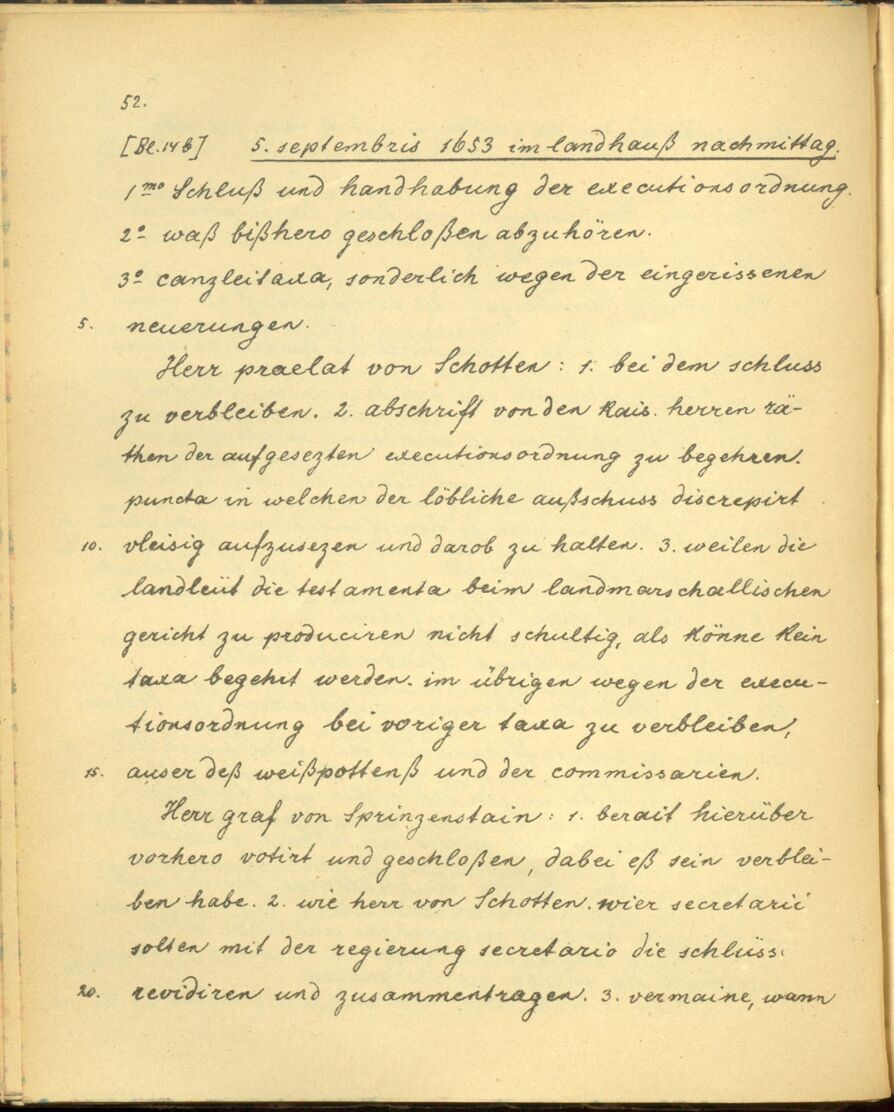 52.
[Bl. 14 b] 5. septembris 1653 im landhauß nachmittag.
1mo Schluß und handhabung der executionsordnung.
2o waß bißhero geschloßen abzuhören.
3o canzleitaxa, sonderlich wegen der eingerissenen
5. neuerungen.
Herr praelat von Schotten: 1. bei dem schluss
zu verbleiben. 2. abschrift von den Kais. herren rä-
then der aufgesezten executionsordnung zu begehren.
puncta in welchen der löbliche außschuss discrepirt
10. vleisig aufzusezen und darob zu halten. 3. weilen die
landleüt die testamenta beim landmarschallischen
gericht zu produciren nicht schultig, als könne kein
taxa begehrt werden. im übrigen wegen der execu-
tionsordnung bei voriger taxa zu verbleiben,
15. auser deß weißpottenß und der commissarien.
Herr graf von Sprinzenstain: 1. berait hierüber
vorhero votirt und geschloßen, dabei eß sein verblei-
ben habe. 2. wie herr von Schotten. wier secretarii
solten mit der regierung secretario die schlüss
20. revidiren und zusammentragen. 3. vermaine, wann